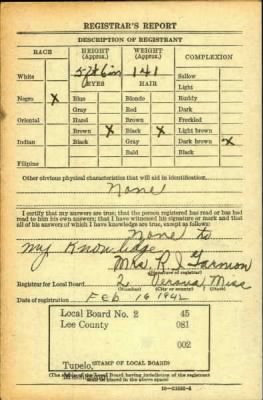 REGISTRAR'S REPORT
DESCRIPTION OF REGISTRANT
RACE HEIGHT (Approx.) WEIGHT (Approx.) COMPLEXION
5 ft 6 in 141
White EYES HAIR Sallow
Light
Negro X Blue Blonde Ruddy
Gray Red Dark
Oriental Hazel Brown Freckled
Brown X Black X Light brown
Indian Black Gray Dark brown X
Bald Black
Filipino
Other obvious physical characteristics that will aid in identification
None
I certify that my answers are true; that the person registered has read or has had
read to him his own answers; that I have witnessed his signature or mark and that
all of his answers of which I have knowledge are true, except as follows:
None to
my Knowledge
Mrs.
(Signature of registrar)
Registrar for Local Board 2 Verona Miss
(Number) (City or county) (State)
Date of registration FEB 16 1942
Local Board No. 2 45
Lee County 081
002
Tupelo,
(STAMP OF LOCAL BOARD)
(The stamp of the Local Board having jurisdiction of the registrant
shall be placed in the above space)